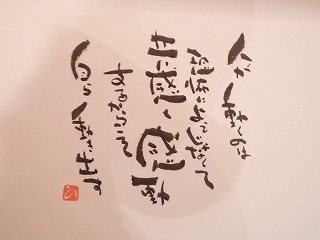 人が動くのは
説得によってじゃなくて
共に感じ感動
するからこそ
自ら動き出す